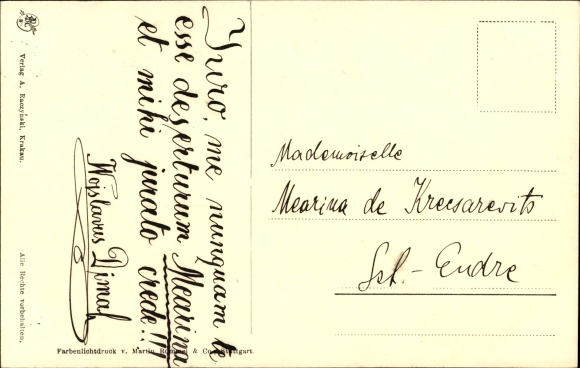 Juro, me nunquam te
esse deserturum Mearina
et mihi jurato crede!!!
Wojslavus Dimal
Mademoiselle
Mearina de Krecsarevits
Sct. - Endre
Verlag A. Ramzyński, Krakau.
Alle Rechte vorbehalten.
Farbenlichtdruck v. Martin Rommel & Co., Stuttgart.